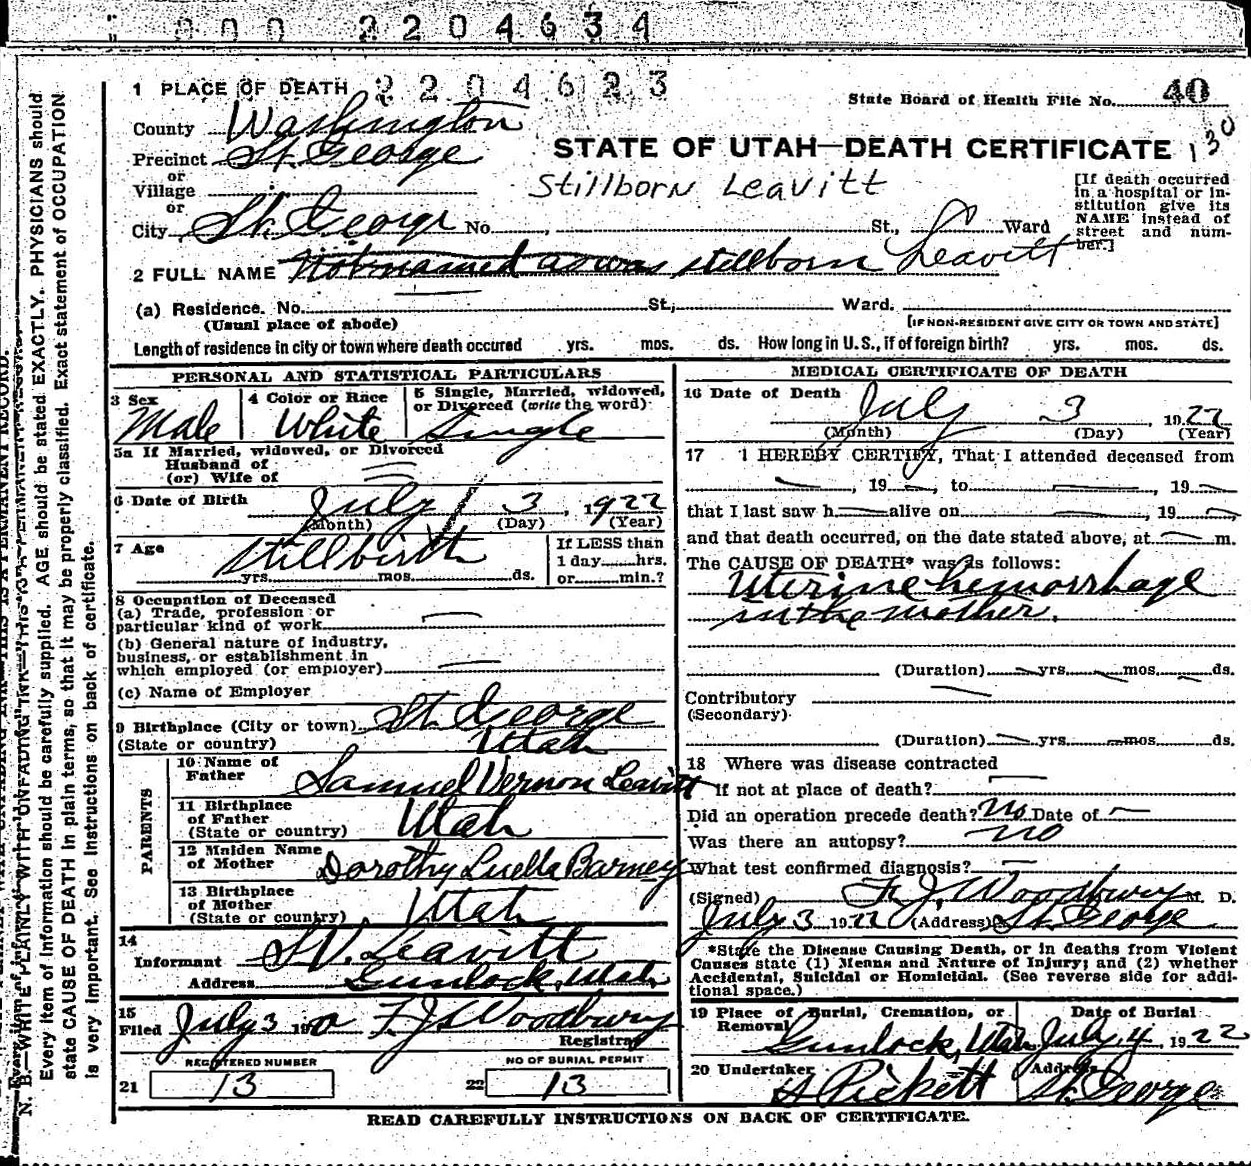 000 2204634
1 PLACE OF DEATH 2204623
State Board of Health File No. 40
County Washington
130
Precinct St. George
STATE OF UTAH—DEATH CERTIFICATE
or
Village
Stillborn Leavitt
[If death occurred in a hospital or institution give its NAME instead of street and number.]
or
City St. George No. , St., Ward
2 FULL NAME Not named as was stillborn Leavitt
(a) Residence. No. St., Ward.
(Usual place of abode)
[IF NON-RESIDENT GIVE CITY OR TOWN AND STATE]
Length of residence in city or town where death occured yrs. mos. ds. How long in U.S., if of foreign birth? yrs. mos. ds.
PERSONAL AND STATISTICAL PARTICULARS
3 Sex
Male
4 Color or Race
White
5 Single, Married, widowed,
or Divorced (write the word)
Single
5a If Married, widowed, or Divorced
Husband of
(or) Wife of
6 Date of Birth July 3, 1922
(Month) (Day) (Year)
7 Age Stillbirth
yrs. mos. ds.
If LESS than
1 day hrs.
or min.?
8 Occupation of Deceased
(a) Trade, profession or
particular kind of work
(b) General nature of industry,
business, or establishment in
which employed (or employer)
(c) Name of Employer
9 Birthplace (City or town) St. George
(State or country) Utah
PARENTS
10 Name of
Father Samuel Vernon Leavitt
11 Birthplace
of Father
(State or country) Utah
12 Maiden Name
of Mother Dorothy Luella Barney
13 Birthplace
of Mother
(State or country) Utah
14
Informant S.V. Leavitt
Address Gunlock, Utah
15
Filed July 3 19 F. J. Woodbury
Registrar
REGISTERED NUMBER
21 13
NO OF BURIAL PERMIT
22 13
MEDICAL CERTIFICATE OF DEATH
16 Date of Death July 3, 1922
(Month) (Day) (Year)
17 I HEREBY CERTIFY, That I attended deceased from
, 19 , to , 19
that I last saw h alive on , 19
and that death occurred, on the date stated above, at m.
The CAUSE OF DEATH* was as follows:
Uterine hemorrhage
in the mother.
(Duration) yrs. mos. ds.
Contributory
(Secondary)
(Duration) yrs. mos. ds.
18 Where was disease contracted
If not at place of death?
Did an operation precede death? No Date of
Was there an autopsy? no
What test confirmed diagnosis?
(Signed) F. J. Woodbury M. D.
July 3 1922 (Address) St. George
*State the Disease Causing Death, or in deaths from Violent
Causes state (1) Means and Nature of Injury; and (2) whether
Accidental, Suicidal or Homicidal. (See reverse side for addi-
tional space.)
19 Place of Burial, Cremation, or
Removal
Gunlock, Utah
Date of Burial
July 4, 1922
20 Undertaker
H Pickett
Address
St. George
READ CAREFULLY INSTRUCTIONS ON BACK OF CERTIFICATE.
N. B.—WRITE PLAINLY WITH UNFADING INK—THIS IS A PERMANENT RECORD.
Every item of information should be carefully supplied. AGE should be stated EXACTLY. PHYSICIANS should
state CAUSE OF DEATH in plain terms, so that it may be properly classified. Exact statement of OCCUPATION
is very important. See Instructions on back of certificate.